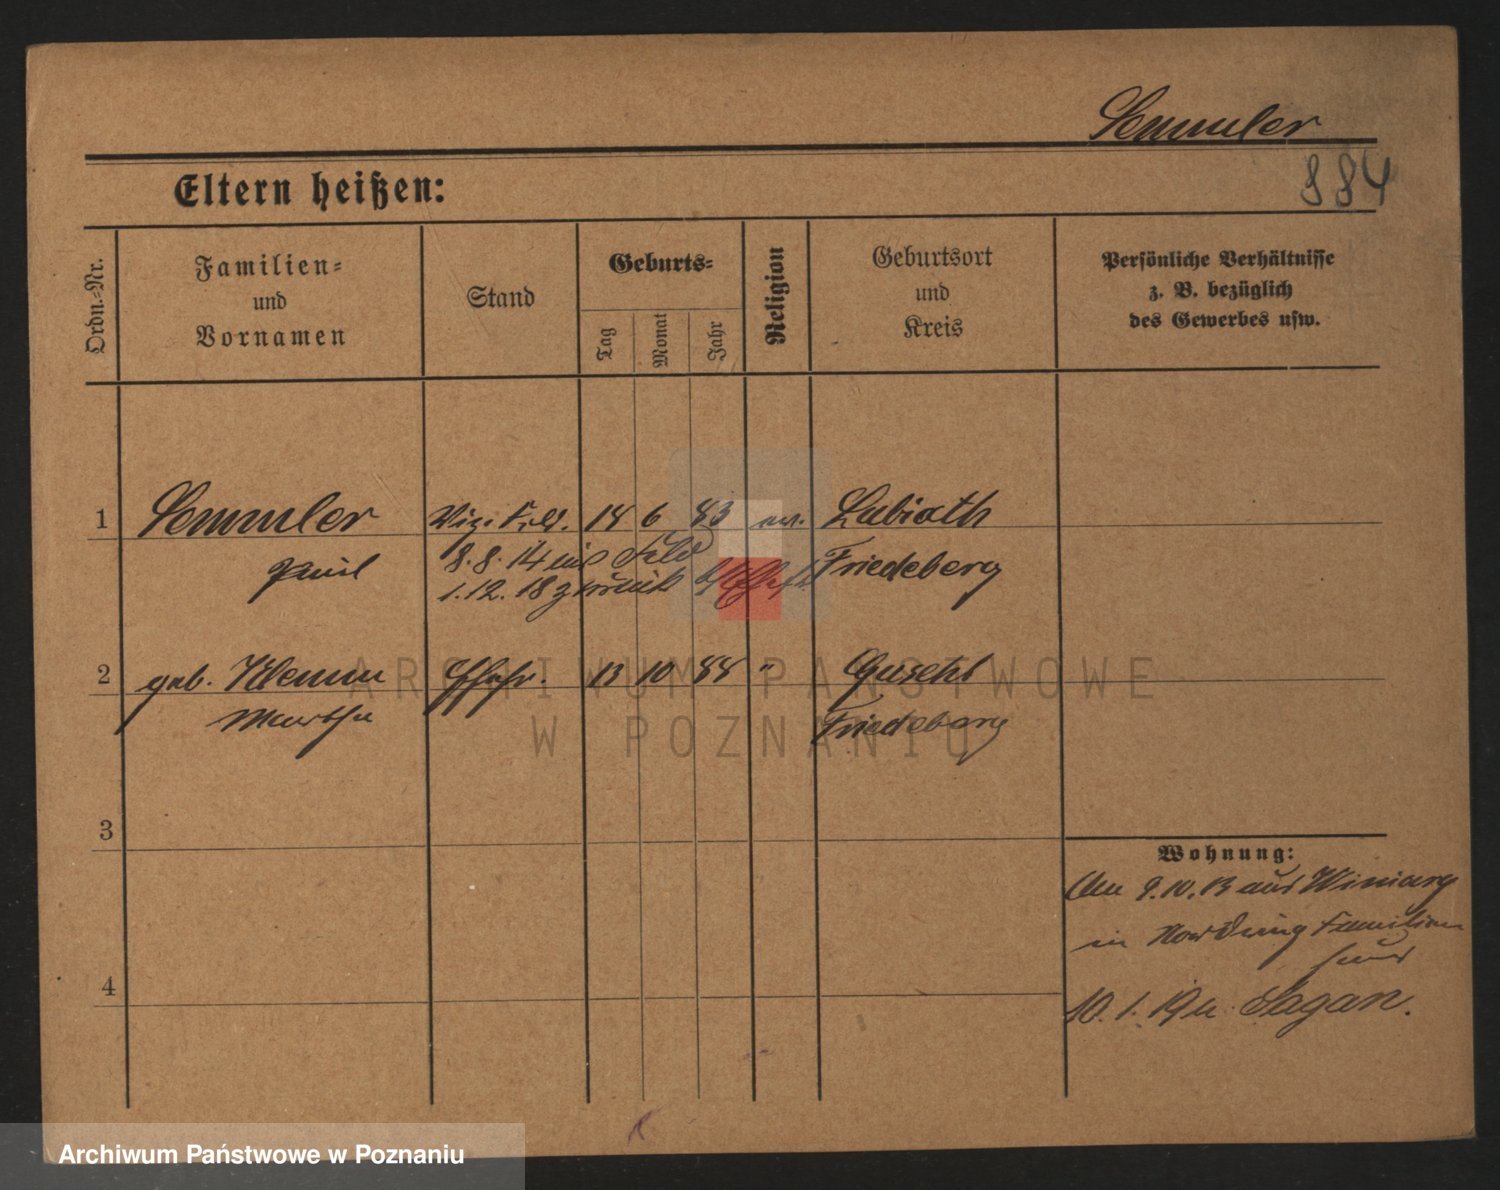 Semmler
884
Eltern heißen:
Ordn.-Nr.
Familien-
und
Vornamen
Stand
Geburts-
Tag
Monat
Jahr
Religion
Geburtsort
und
Kreis
Persönliche Verhältnisse
z. B. bezüglich
des Gewerbes usw.
1 Semmler Viz. Feld. 18 6 83 ev. Lubiath
Paul 8.8.14 ins Feld Friedeberg
1.12.18 zurück
2 geb. Klemm Ehefr. 13 10 88 " Guscht
Martha Friedeberg
3
4
Wohnung:
Am 9.10.13 aus Winiary
in Familien
haus
10.1.19 n. Sagan.
ARCHIWUM PAŃSTWOWE
W POZNANIU
Archiwum Państwowe w Poznaniu